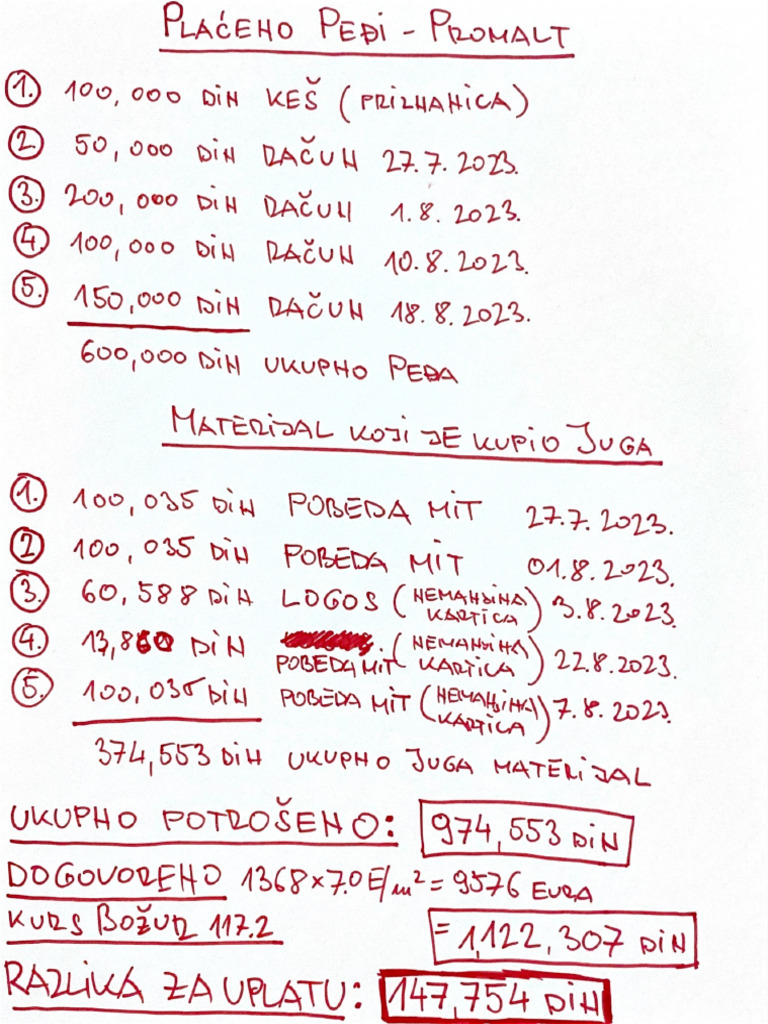 PLAĆENO PEĐI - PROMALT
1. 100,000 DIN KEŠ (PRIZNANICA)
2. 50,000 DIN RAČUN 27.7.2023.
3. 200,000 DIN RAČUN 1.8.2023.
4. 100,000 DIN RAČUN 10.8.2023.
5. 150,000 DIN RAČUN 18.8.2023.
600,000 DIN UKUPNO PEĐA
MATERIJAL KOJI JE KUPIO JUGA
1. 100,035 DIN POBEDA MIT 27.7.2023.
2 100,035 DIN POBEDA MIT 01.8.2023.
3. 60,588 DIN LOGOS (NEMANJINA KARTICA) 3.8.2023.
4. 13,860 DIN POBEDA MIT (NEMANJINA KARTICA) 22.8.2023.
5. 100,035 DIN POBEDA MIT (NEMANJINA KARTICA) 7.8.2023.
374,553 DIN UKUPNO JUGA MATERIJAL
UKUPNO POTROŠENO: 974,553 DIN
DOGOVORENO 1368 x 7.0 E/m² = 9576 EURA
KURS BOŽUR 117.2 = 1,122,307 DIN
RAZLIKA ZA UPLATU: 147,754 DIN